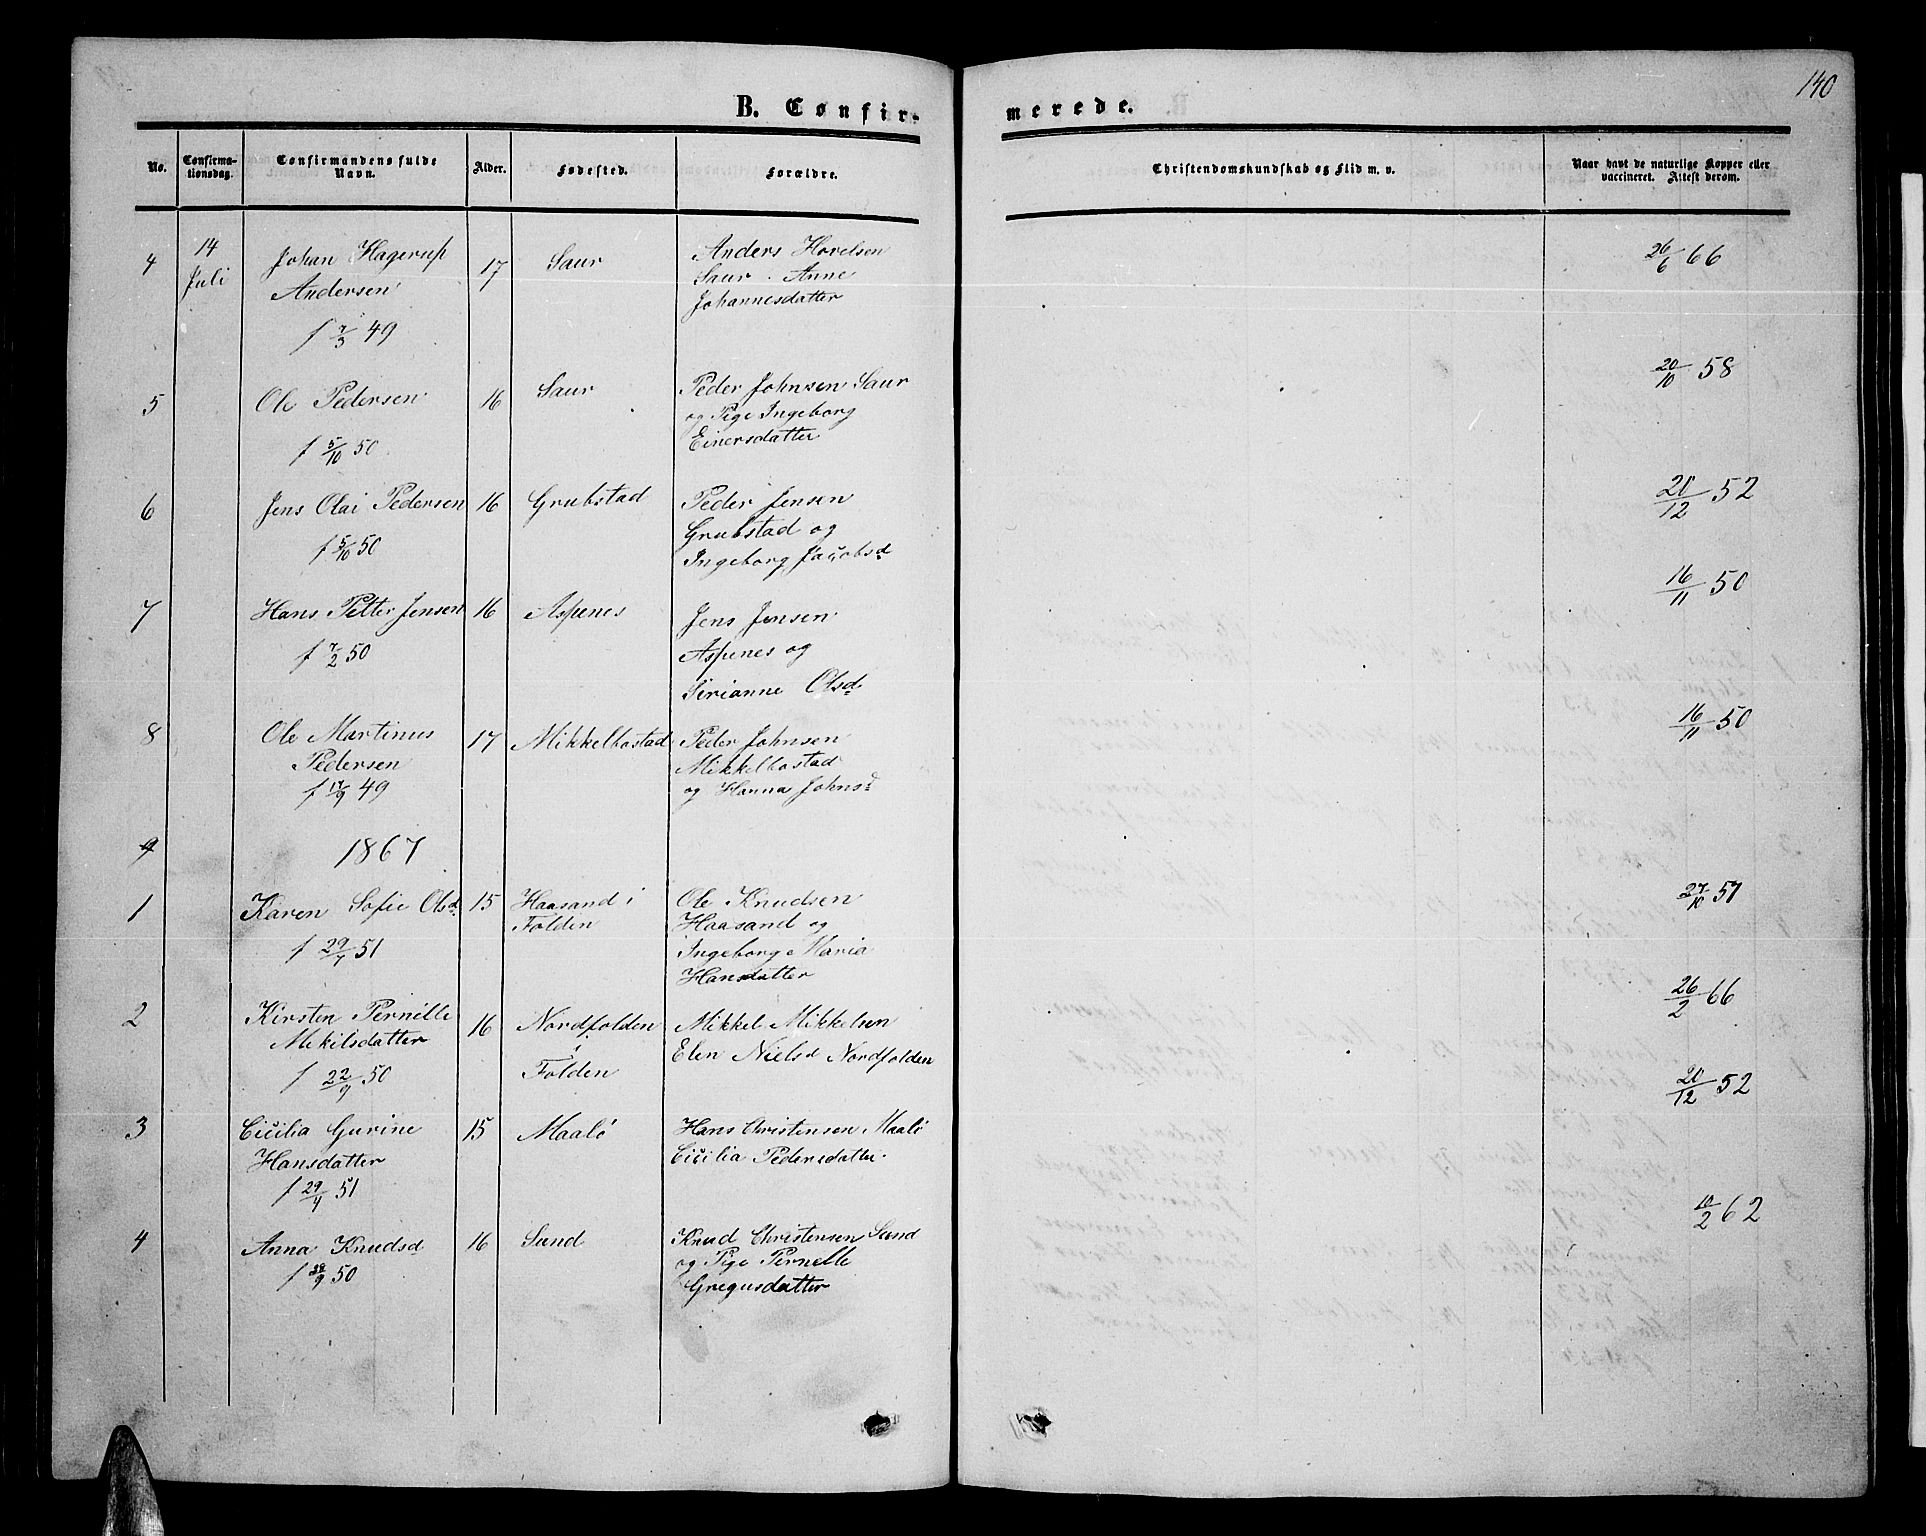 140
B. Confirmerede.
No. Confirmationsdag. Confirmandens fulde Navn. Alder. Fødested. Forældre. Christendomskundskab og Flid m. v. Naar havt de naturlige Kopper eller vaccineret. Attest derom.
4 14 Juli Johan Hagerup 17 Saur Anders Hovelsen 26/6 66
Andersen Saur . Anne
f 7/3 49 Johannesdatter
5 Ole Pedersen 16 Saur Peder Johnsen Saur 20/10 58
og Pige Ingeborg
f 5/10 50 Einersdatter
6 Jens Olai Pedersen 16 Grubstad Peder Jensen 20/12 52
f 5/10 50 Grubstad og
Ingeborg Jacobsd
7 Hans Petter Jensen 16 Aspenes Jens Jensen 16/11 50
f 7/2 50 Aspenes og
Sirianne Olsd
8 Ole Martinus 17 Mikkelbostad Peder Johnsen 16/11 50
Pedersen Mikkelbostad
f 17/9 49 og Hanna Johnsd
9 1867
1 Karen Sofie Olsd 15 Haasand i Ole Knudsen 27/10 51
Folden Haasand og
f 29/4 51 Ingeborg Maria
Hansdatter
2 Kirsten Pernille 16 Nordfolden Mikkel Mikkelsen 26/2 66
Mekilsdatter i Elen Nielsd Nordfolden
f 22/9 50 Folden
3 Cicilia Gurine 15 Maalö Hans Christensen Maalö 20/12 52
Hansdatter Cicilia Pedersdatter.
f 29/4 51
4 Anna Knudsd 16 Sand Knud Christensen Sand 10/2 62
f 28/9 50 og Pige Pernelle
Gregusdatter